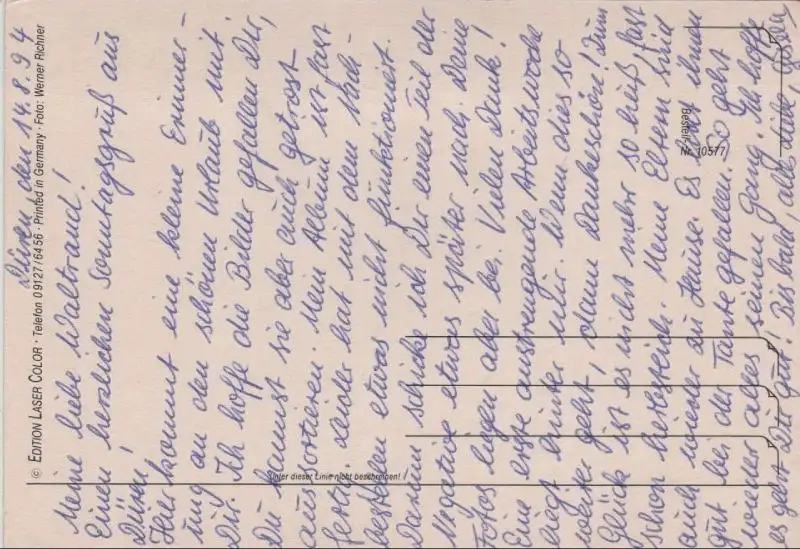 Düren, den 14.8.94
Meine liebe Waltraud!
Einen herzlichen Sonntagsgruß aus
Düren!
Hier kommt eine kleine Erinner-
ung an den schönen Urlaub mit
Dir. Ich hoffe die Bilder gefallen Dir,
Du kannst sie aber auch getrost
aussortieren. Mein Album ist fast
fertig. Leider hat mit dem Nach-
bestellen etwas nicht funktioniert.
Darum schicke ich Dir einen Teil der
Negative etwas später nach. Deine
Fotos liegen aber bei. Vielen Dank!
Eine erste anstrengende Arbeitswoche
liegt hinter mir. Wenn dies so
weiter geht, dann Dankeschön! Zum
Glück ist es nicht mehr so heiß, fast
schon herbstlich. Meine Eltern sind
auch wieder zu Hause. Es hat ihnen
gut bei der Tante gefallen. So geht
wieder alles seinen Gang. Ich hoffe
es geht Dir gut! Bis bald, alles Liebe,
© EDITION LASER COLOR · Telefon 09127/6456 · Printed in Germany · Foto: Werner Richner
Unter dieser Linie nicht beschreiben!
Bestell-
Nr. 10577